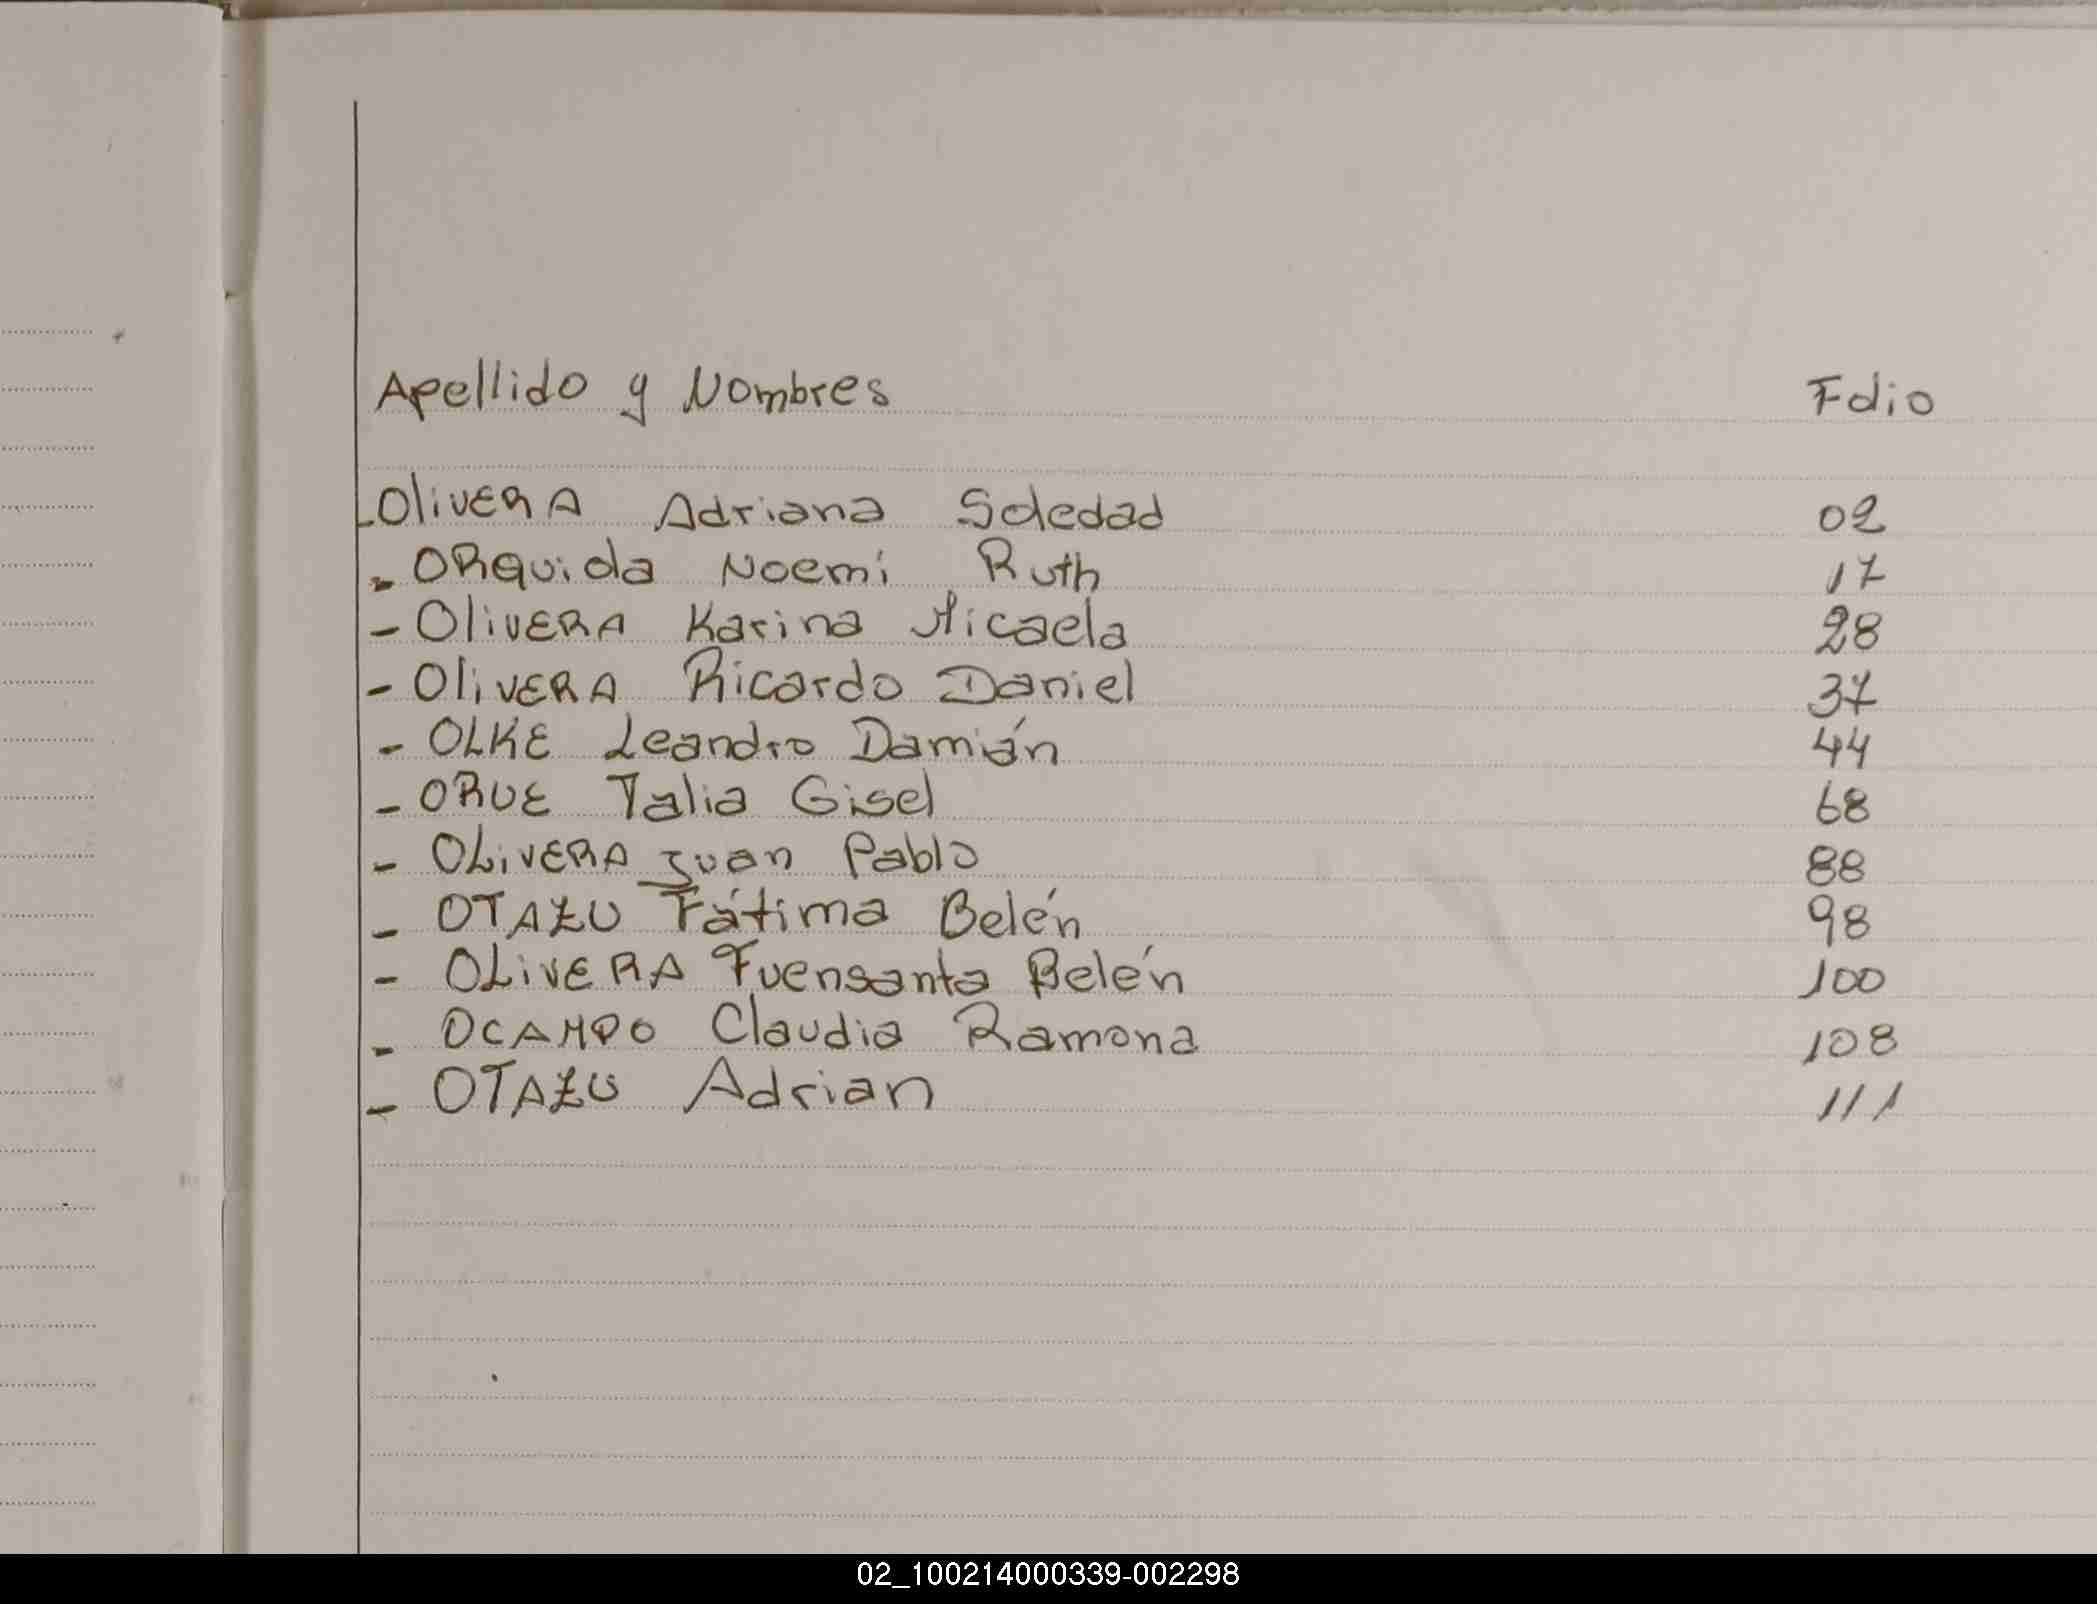 Apellido y Nombres Folio
- OliVERA Adriana Soledad 02
- ORquida Noemi Ruth 17
- OliVERA Karina Micaela 28
- OliVERA Ricardo Daniel 37
- OLKE Leandro Damián 44
- ORUE Talia Gisel 68
- OLiVERA Juan Pablo 88
- OTAZU Fátima Belén 98
- OLiVERA Fuensanta Belén 100
- OCAMPO Claudia Ramona 108
- OTAZU Adrian 111
02_100214000339-002298